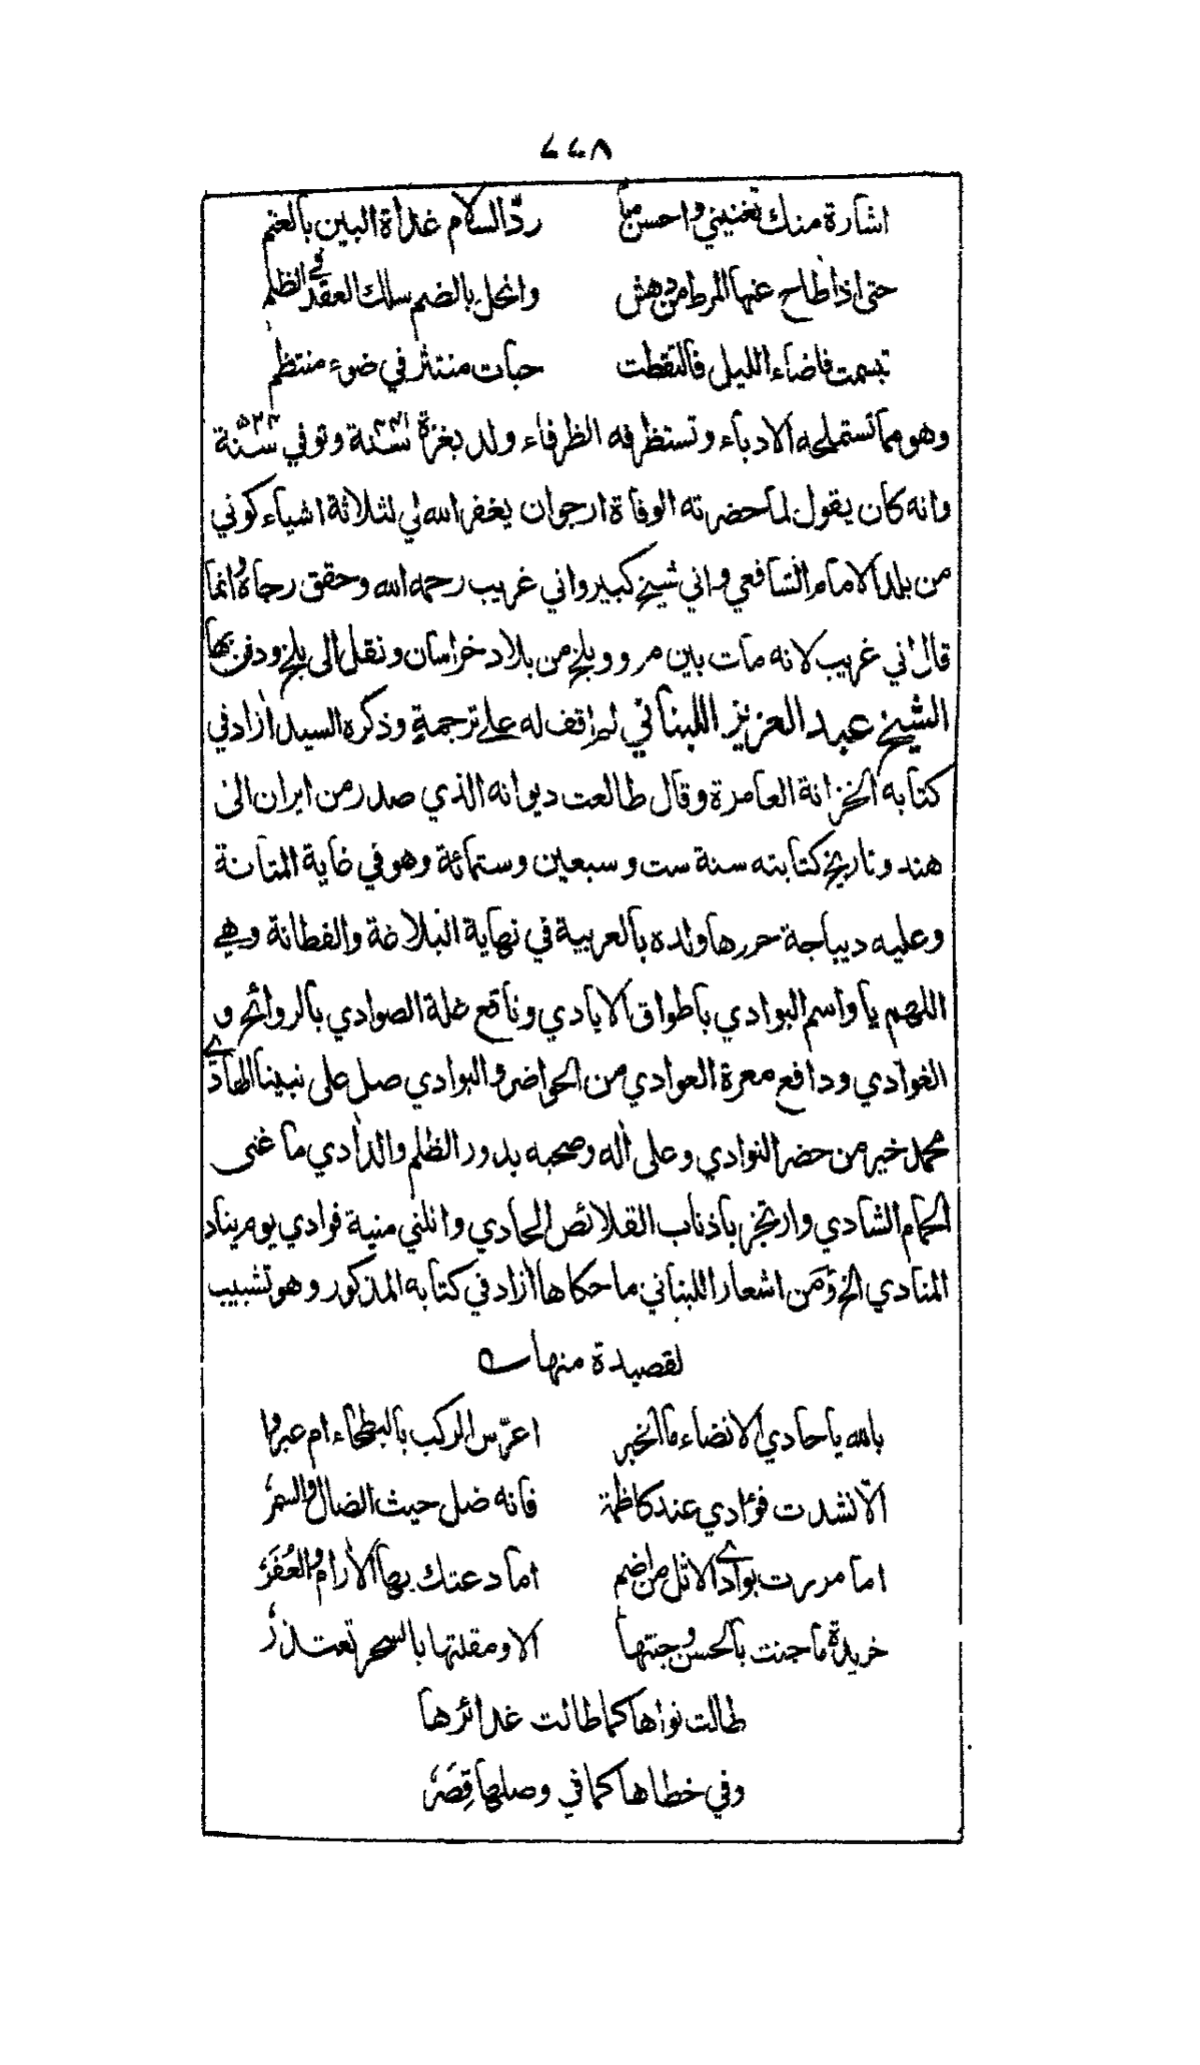 ٤٤٨
اشارة منك تغنيني واحسن ما ردّ السلام غداة البين بالعنم
حتى اذا طاح عنها المرط من دهش وانحل بالضم سلك العقد في الظلم
تبسمت فاضاء الليل فالتقطت حبات منتثر في ضوء منتظم
وهو مما تستملحه الادباء وتستظرفه الظرفاء ولد بغزة سنة وتوفي سنة
وانه كان يقول لما حضرته الوفاة ارجوان يغفر الله لي لثلاثة اشياء كوني
من بلد الامام الشافعي واني شيخ كبير واني غريب رحمه الله وحقق رجاه وانما
قال اني غريب لانه مات بين مرو وبلخ من بلاد خراسان ونقل الى بلخ ودفن بها
الشيخ عبد العزيز اللبناني لم اقف له على ترجمة وذكره السيد ازاد في
كتابه الخزانة العامرة وقال طالعت ديوانه الذي صدر من ايران الى
هند وتاريخ كتابته سنة ست وسبعين وستمائة وهو في غاية المتانة
وعليه ديباجة حررها ولده بالعربية في نهاية البلاغة والفطانة وهي
اللهم يا واسم البوادي باطواق الايادي وناقع غلة الصوادي بالروائح و
الغوادي ودافع معرة العوادي من الحواضر والبوادي صل على نبينا الهادي
محمد خير من حضر النوادي وعلى اله وصحبه بدور الظلم والدادي ما غنى
الحمام الشادي وارتجز باذناب القلائص الحادي وانلني منية فوادي يوم يناد
المنادي الخ ومن اشعار اللبناني ما حكاها ازاد في كتابه المذكور وهو تشبيب
لقصيدة منها
بالله يا حادي الانضاء ما الخبر اعرّس الركب بالبطحاء ام عبروا
الا نشدت فؤادي عند كاظمة فانه ضل حيث الضال والسمر
اما مررت بوادي الاثل من اضم اما دعتك بها الارام والعُفَر
خريدة ما جنت بالحسن وجنتها الا ومقلتها بالسحر تعتذر
طالت نواها كما طالت غدائرها
وفي خطاها كما في وصلها قِصَر